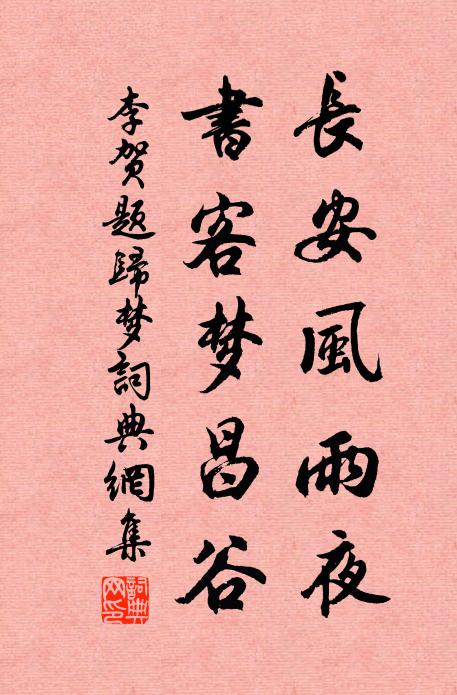 長安風雨夜
書客梦昌谷
李贺题歸梦詞典網集
詞典网印